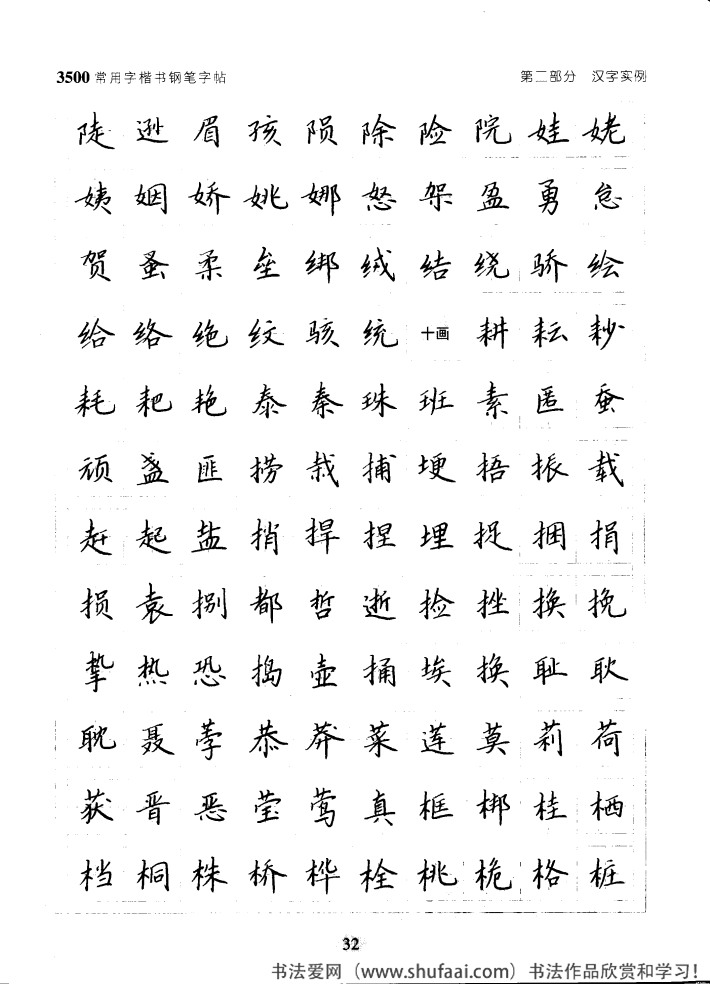 3500 常用字楷书钢笔字帖 第二部分 汉字实例
陡 逊 眉 孩 陨 除 险 院 娃 姥
姨 姻 娇 姚 娜 怒 架 盈 勇 怠
贺 蚤 柔 垒 绑 绒 结 绕 骄 绘
给 络 绝 纹 骇 统 十画 耕 耘 耖
耗 耙 艳 泰 秦 珠 班 素 匿 蚕
顽 盏 匪 捞 栽 捕 埂 捂 振 载
赶 起 盐 捎 捍 捏 埋 捉 捆 捐
损 袁 捌 都 哲 逝 捡 挫 换 挽
挚 热 恐 捣 壶 捅 埃 换 耻 耿
耽 聂 荸 恭 莽 菜 莲 莫 莉 荷
获 晋 恶 莹 莺 真 框 梆 桂 栖
档 桐 株 桥 桦 栓 桃 桅 格 桩
32
书法爱网（www.shufaai.com）书法作品欣赏和学习！